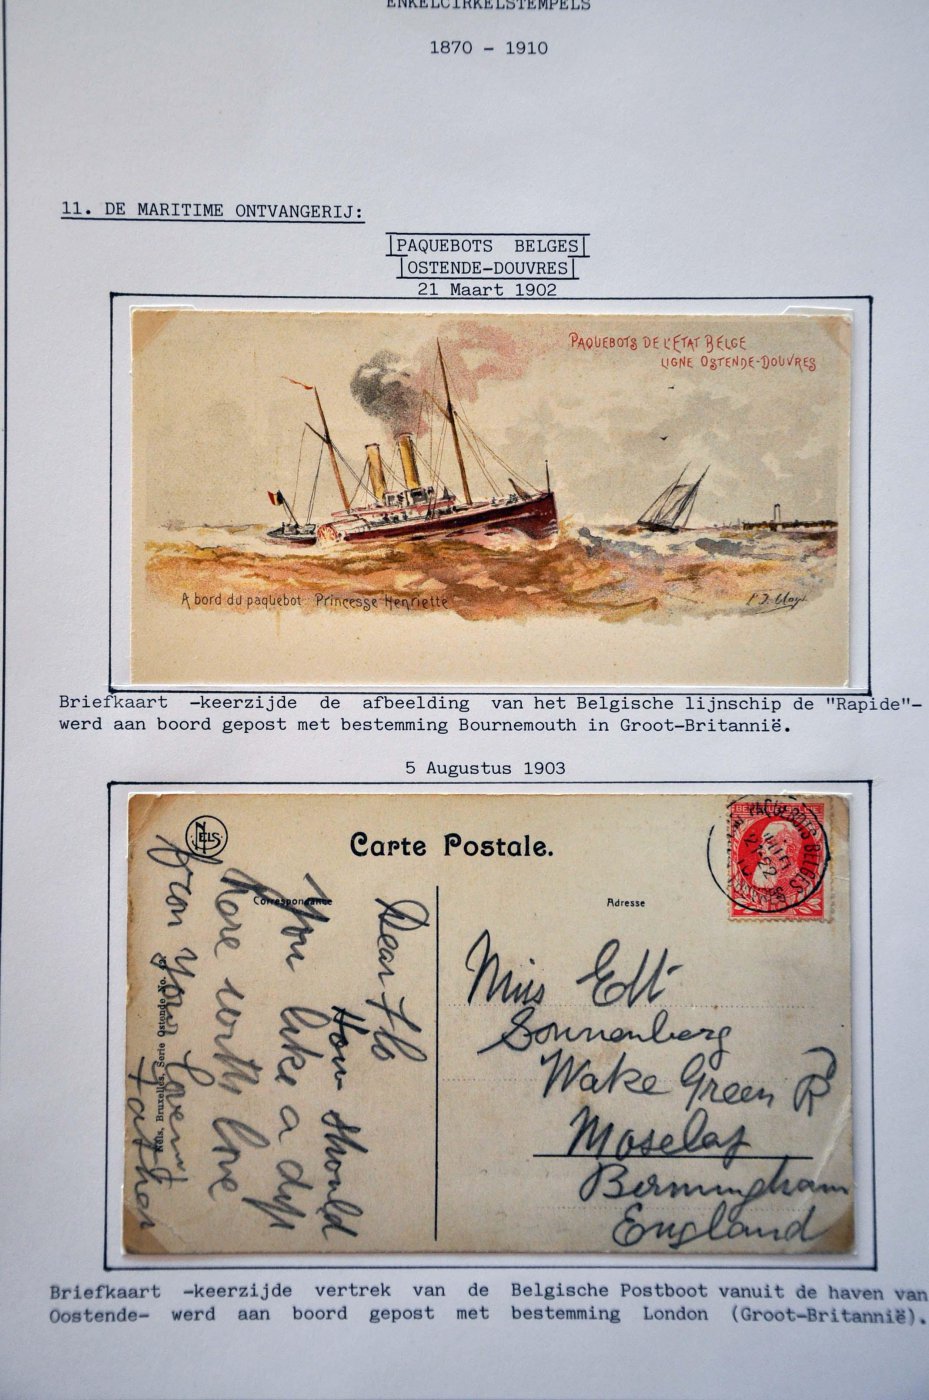 ENKELCIRKELSTEMPELS
1870 - 1910
11. DE MARITIME ONTVANGERIJ:
PAQUEBOTS BELGES
OSTENDE-DOUVRES
21 Maart 1902
PAQUEBOTS DE L'ÉTAT BELGE
LIGNE OSTENDE-DOUVRES
A bord du paquebot: Princesse Henriette
Briefkaart -keerzijde de afbeelding van het Belgische lijnschip de "Rapide"-
werd aan boord gepost met bestemming Bournemouth in Groot-Britannië.
5 Augustus 1903
NELS
Carte Postale.
Correspondance
Adresse
PAQUEBOTS BELGES
Dear Flo
How should
You like a dip
here with love
from your lovent
Father
Nels, Bruxelles, Serie Ostende No.
Miss Edt
Sonnenberg
Wake Green Rd
Moseley
Birmingham
England
Briefkaart -keerzijde vertrek van de Belgische Postboot vanuit de haven van
Oostende- werd aan boord gepost met bestemming London (Groot-Britannië).